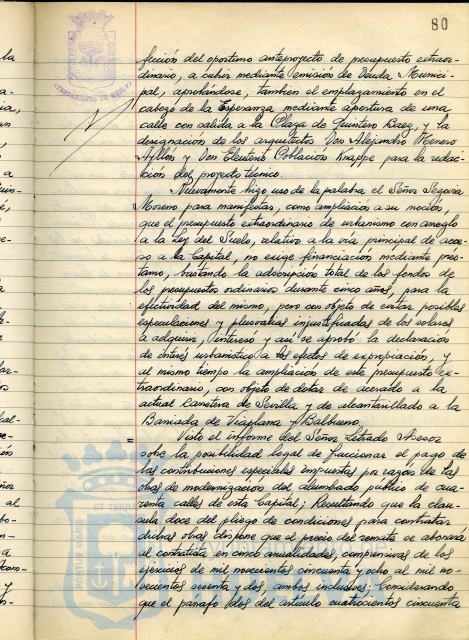 80
fección del oportuno anteproyecto de presupuesto extraor-
dinario, a cubrir mediante emisión de Deuda Munici-
pal, aprobándose, también el emplazamiento en el
cabezo de la Esperanza mediante apertura de una
calle con salida a la Plaza de Quintero Baez, y la
designación de los arquitectos Don Alejandro Herrero
Ayllón y Don Eleuterio Población Knappe para la redac-
ción del proyecto técnico.
Nuevamente hizo uso de la palabra el Señor Segovia
Moreno para manifestar, como ampliación a su moción,
que el presupuesto extraordinario de urbanismo con arreglo
a la Ley del Suelo, relativo a la via principal de acce-
so a la Capital, no exige financiación mediante prés-
tamo, bastando la adscripción total de los fondos de
los presupuestos ordinarios durante cinco años, para la
efectividad del mismo, pero con objeto de evitar posibles
especulaciones y plusvalias injustificadas de los solares
a adquirir, interesó y asi se aprobó la declaración
de interés urbanístico a los efectos de expropiación, y
al mismo tiempo la ampliación de este presupuesto ex-
traordinario, con objeto de dotar de acerado a la
actual Carretera de Sevilla y de alcantarillado a la
Barriada de Viaplana y Balbueno.
= Visto el informe del Señor Letrado Asesor
sobre la posibilidad legal de fraccionar el pago de
las contribuciones especiales impuestas por razón de las
obras de modernización del alumbrado publico de cua-
renta calles de esta Capital; Resultando que la clau-
sula doce del pliego de condiciones para contratar
dichas obras dispone que el precio del remate se abonará
al contratista en cinco anualidades, comprensivas de los
ejercicios de mil novecientos cincuenta y ocho al mil no-
vecientos sesenta y dos, ambos inclusives; Considerando
que el párrafo dos del artículo cuatrocientos cincuenta